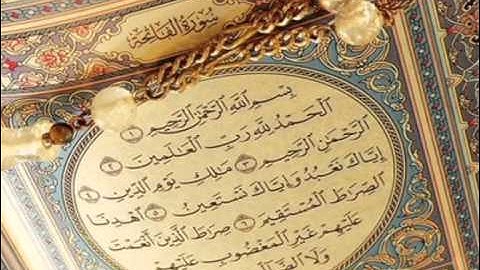 سُورَةُ الفَاتِحَةِ
بِسْمِ اللَّهِ الرَّحْمَٰنِ الرَّحِيمِ ١
الْحَمْدُ لِلَّهِ رَبِّ الْعَٰلَمِينَ ٢
الرَّحْمَٰنِ الرَّحِيمِ ٣ مَٰلِكِ يَوْمِ الدِّينِ ٤
إِيَّاكَ نَعْبُدُ وَإِيَّاكَ نَسْتَعِينُ ٥ اهْدِنَا
الصِّرَٰطَ الْمُسْتَقِيمَ ٦ صِرَٰطَ الَّذِينَ أَنْعَمْتَ
عَلَيْهِمْ غَيْرِ الْمَغْضُوبِ عَلَيْهِمْ
وَلَا